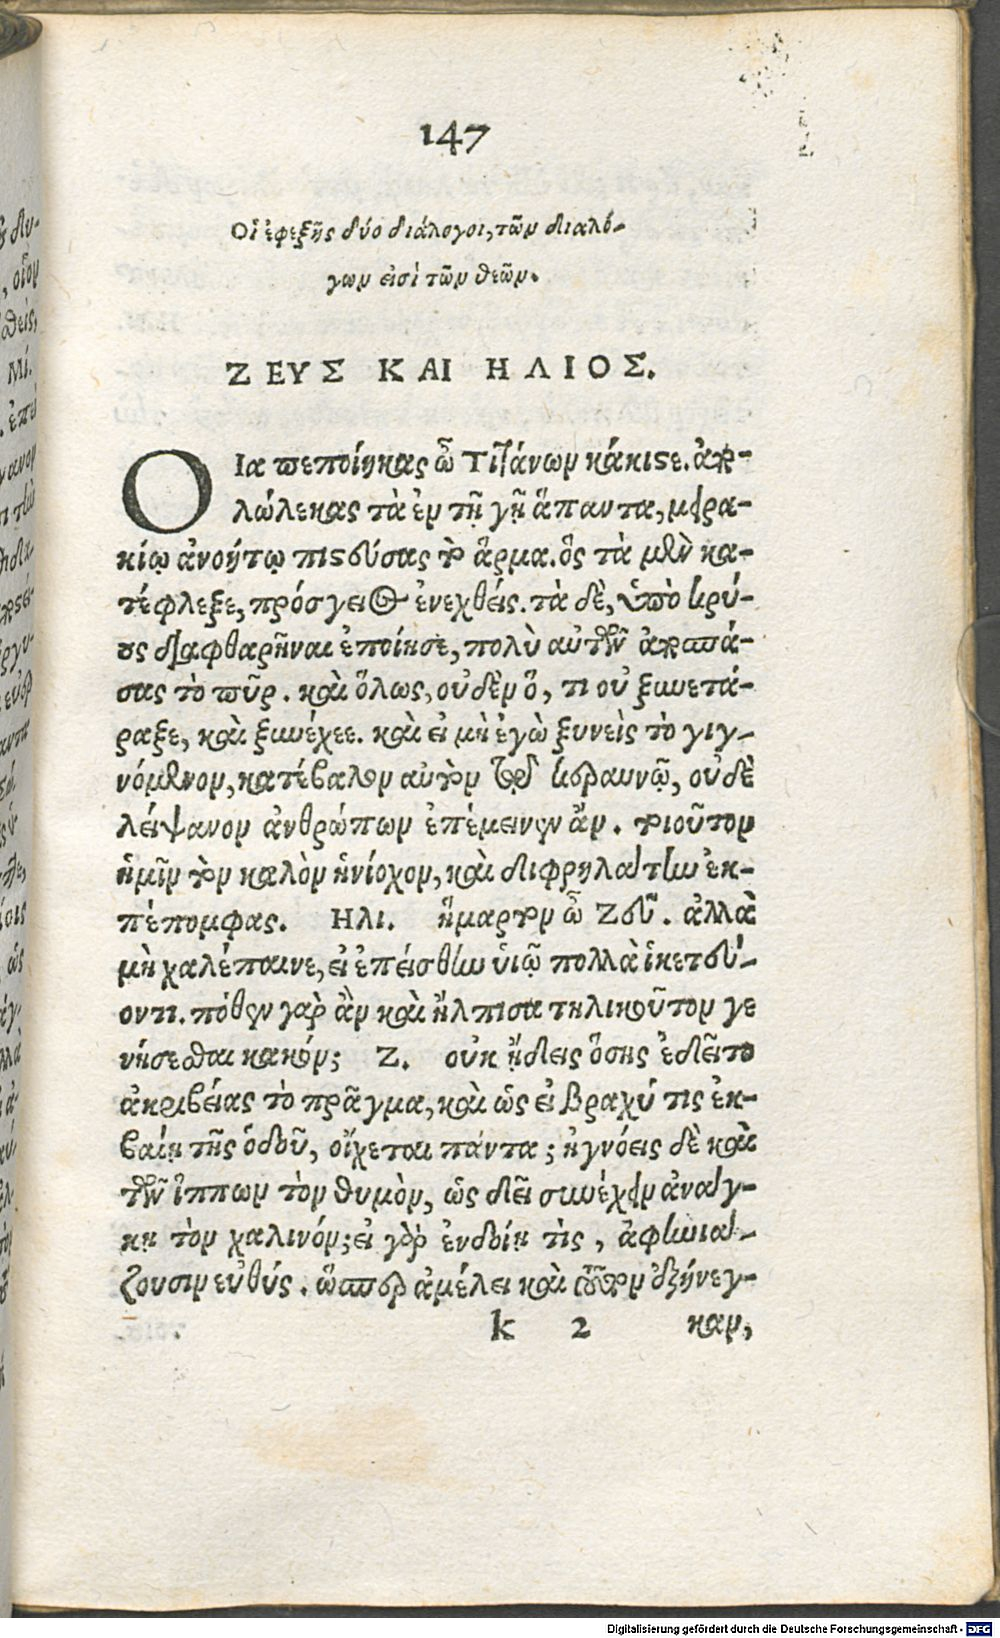 147
Οἱ ἐφεξῆς δύο διάλογοι, τῶν διαλό-
γων εἰσὶ τῶν θεῶν.
ΖΕΥΣ ΚΑΙ ΗΛΙΟΣ.
ΟΙα πεποίηκας ὦ Τιτάνων κάκιστε. ἀπο-
λώλεκας τὰ ἐν τῇ γῇ ἅπαντα, μειρα-
κίῳ ἀνοήτῳ πιστεύσας τὸ ἅρμα. ὃς τὰ μὲν κα-
τέφλεξε, πρόσγειος ἐνεχθείς. τὰ δὲ, ὑπὸ κρύ-
ους διαφθαρῆναι ἐποίησε, πολὺ αὐτῶν ἀποσπά-
σας τὸ πῦρ. καὶ ὅλως, οὐδὲν ὅ, τι οὐ ξυνετά-
ραξε, καὶ ξυνέχεε. καὶ εἰ μὴ ἐγὼ ξυνεὶς τὸ γιγ-
νόμενον, κατέβαλον αὐτὸν τῷ κεραυνῷ, οὐδὲ
λείψανον ἀνθρώπων ἐπέμεινεν ἄν. τοιοῦτον
ἡμῖν τὸν καλὸν ἡνίοχον, καὶ διφρηλάτην ἐκ-
πέπομφας. Ηλι. ἥμαρτον ὦ Ζεῦ. ἀλλὰ
μὴ χαλέπαινε, εἰ ἐπείσθην υἱῷ πολλὰ ἱκετεύ-
οντι. πόθεν γὰρ ἂν καὶ ἤλπισα τηλικοῦτον γε
νήσεσθαι κακόν; Ζ. οὐκ ᾔδεις ὅσης ἐδεῖτο
ἀκριβείας τὸ πρᾶγμα, καὶ ὡς εἰ βραχύ τις ἐκ-
βαίη τῆς ὁδοῦ, οἴχεται πάντα; ἠγνόεις δὲ καὶ
τῶν ἵππων τὸν θυμὸν, ὡς δεῖ συνέχειν ἀνάγ-
κῃ τὸν χαλινόν; εἰ γὰρ ἐνδοίη τὶς, ἀφηνιά-
ζουσιν εὐθύς. ὥσπερ ἀμέλει καὶ τοῦτον ἐξήνεγ-
k 2 καν,
Digitalisierung gefördert durch die Deutsche Forschungsgemeinschaft - DFG